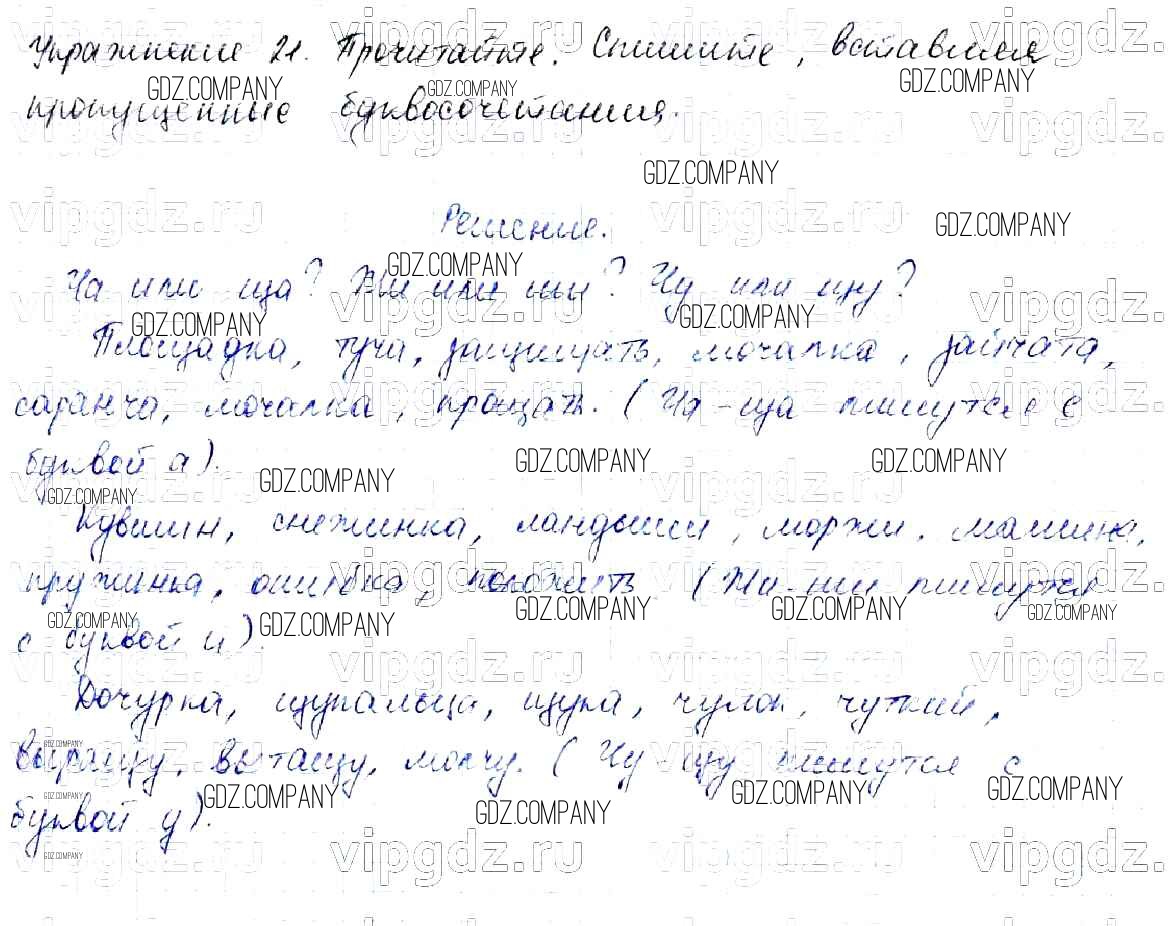 Упражнение 21. Прочитайте. Спишите, вставляя
пропущенные буквосочетания.
Решение.
Ча или ща? Жи или ши? Чу или щу?
Площадка, туча, защищать, мочалка, зайчата,
саранча, мочалка, прощать. (Ча-ща пишутся с
буквой а).
Кувшин, снежинка, ландыши, моржи, машина,
пружинка, ошибка, положить (Жи-ши пишутся
с буквой и).
Дочурка, щупальца, щука, чулок, чуткий,
выращу, вытащу, молчу. (Чу-щу пишутся с
буквой у).
GDZ.COMPANY
vipgdz.ru